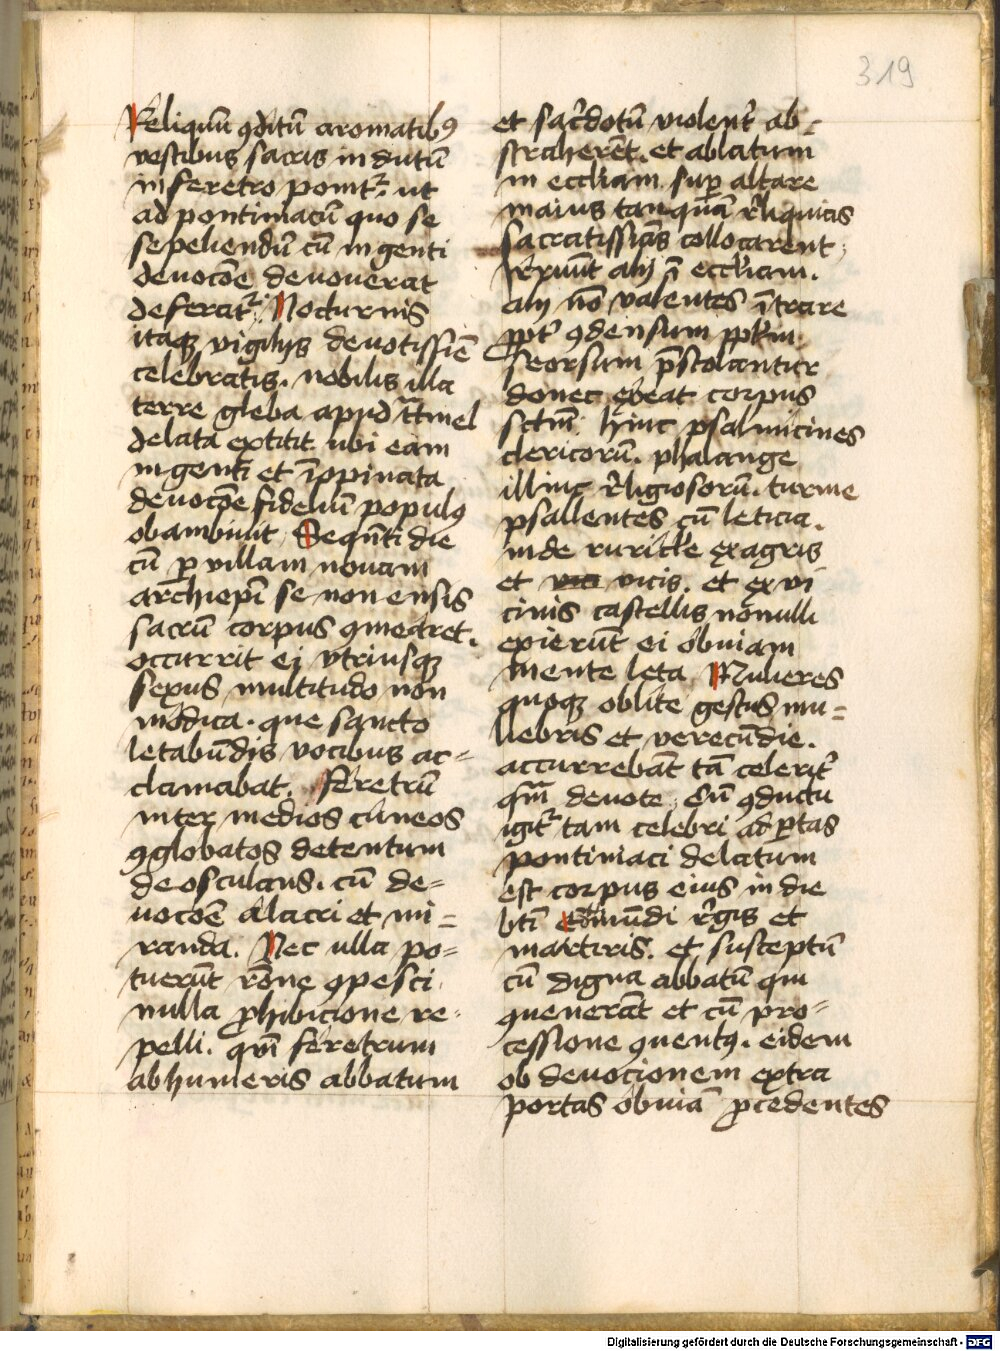 319
Reliquũ ꝯditũ aromatibꝯ
vestibus sacris indutũ
in feretro ponit᷑. ut
ad pontiniacũ quo se
sepeliendũ cũ ingenti
deuocõe deuouerat
deferat᷑. Nocturnis
itaqꝫ vigilijs deuotissiẽ
celebratis. nobilis illa
terre gleba apud
delata extitit. ubi eam
ingenti et ĩopinata
deuocõe fideliũ populꝯ
obambiuit. Sequẽti die
cũ ꝑ villam nouam
archiepĩ senonensis
sacrũ corpus ꝯmearet.
occurrit ei vtriusqꝫ
sexus multitudo non
modica. que sancto
letabũdis vocibus ac=
clamabat. Feretrũ
inter medios cuneos
ꝯglobatos detentum
deosculans. cũ de=
uocõe alacri et mi=
randa. Nec ulla po=
tuerũt rõne ꝯpesci.
nulla ꝓhibicione re=
pelli. qͥn feretrum
ab humeris abbatum
et sac̓dotũ violent̓ ab=
straherẽt. et ablatum
in eccliam. suꝑ altare
maius tanquã r̓liquias
sacratissias collocarent.
Irruũt alij ĩ eccliam.
alij nõ valentes ĩtrare
ꝓpt̓ ꝯdensum pplm.
seorsum p̃stolantur
donec exeat corpus
sctm̃. hinc psalmicines
clericorũ. phalange
illinc r̓ligiosorũ. turme
psallentes cũ leticia.
inde ruricle ex agris
et vicis. et ex vi
cinis castellis nõnulli
exierũt ei obuiam
mente leta. Mulieres
quoqꝫ oblite gestus mu=
liebris et verecũdie.
accurrebãt tã celerit̓
qm̃ deuote. Cũ ꝯductu
igit᷑ tam celebri ad ꝑtas
pontiniaci delatum
est corpus eius in die
bt̃i Edmũdi r̓gis et
martiris. et susceptũ
cũ digna abbatũ qui
ꝯuenerãt et cũ pro=
cessione ꝯuentꝯ. eidem
ob deuocionem extra
portas obuiã ꝓcedentes
Digitalisierung gefördert durch die Deutsche Forschungsgemeinschaft - DFG